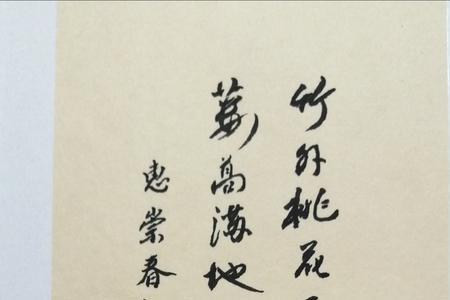 竹外桃花
蒌蒿满地
惠崇春